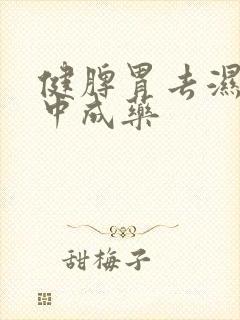 健脾胃去濕
中成藥
甜梅子